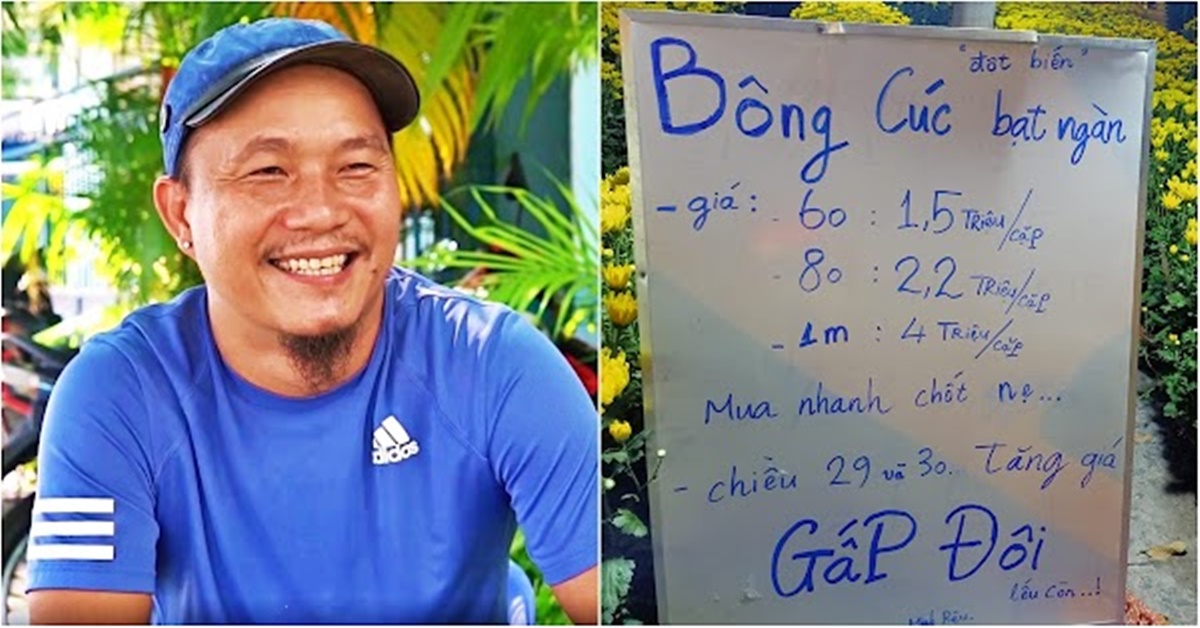 adidas
"đột biến"
Bông Cúc bạt ngàn
- giá: - 60 : 1,5 Triệu/cặp
- 80 : 2,2 Triệu/cặp
- 1m : 4 Triệu/cặp
Mua nhanh chốt nẹ...
- chiều 29 và 30.. Tăng giá
GấP Đôi
lếu còn..!